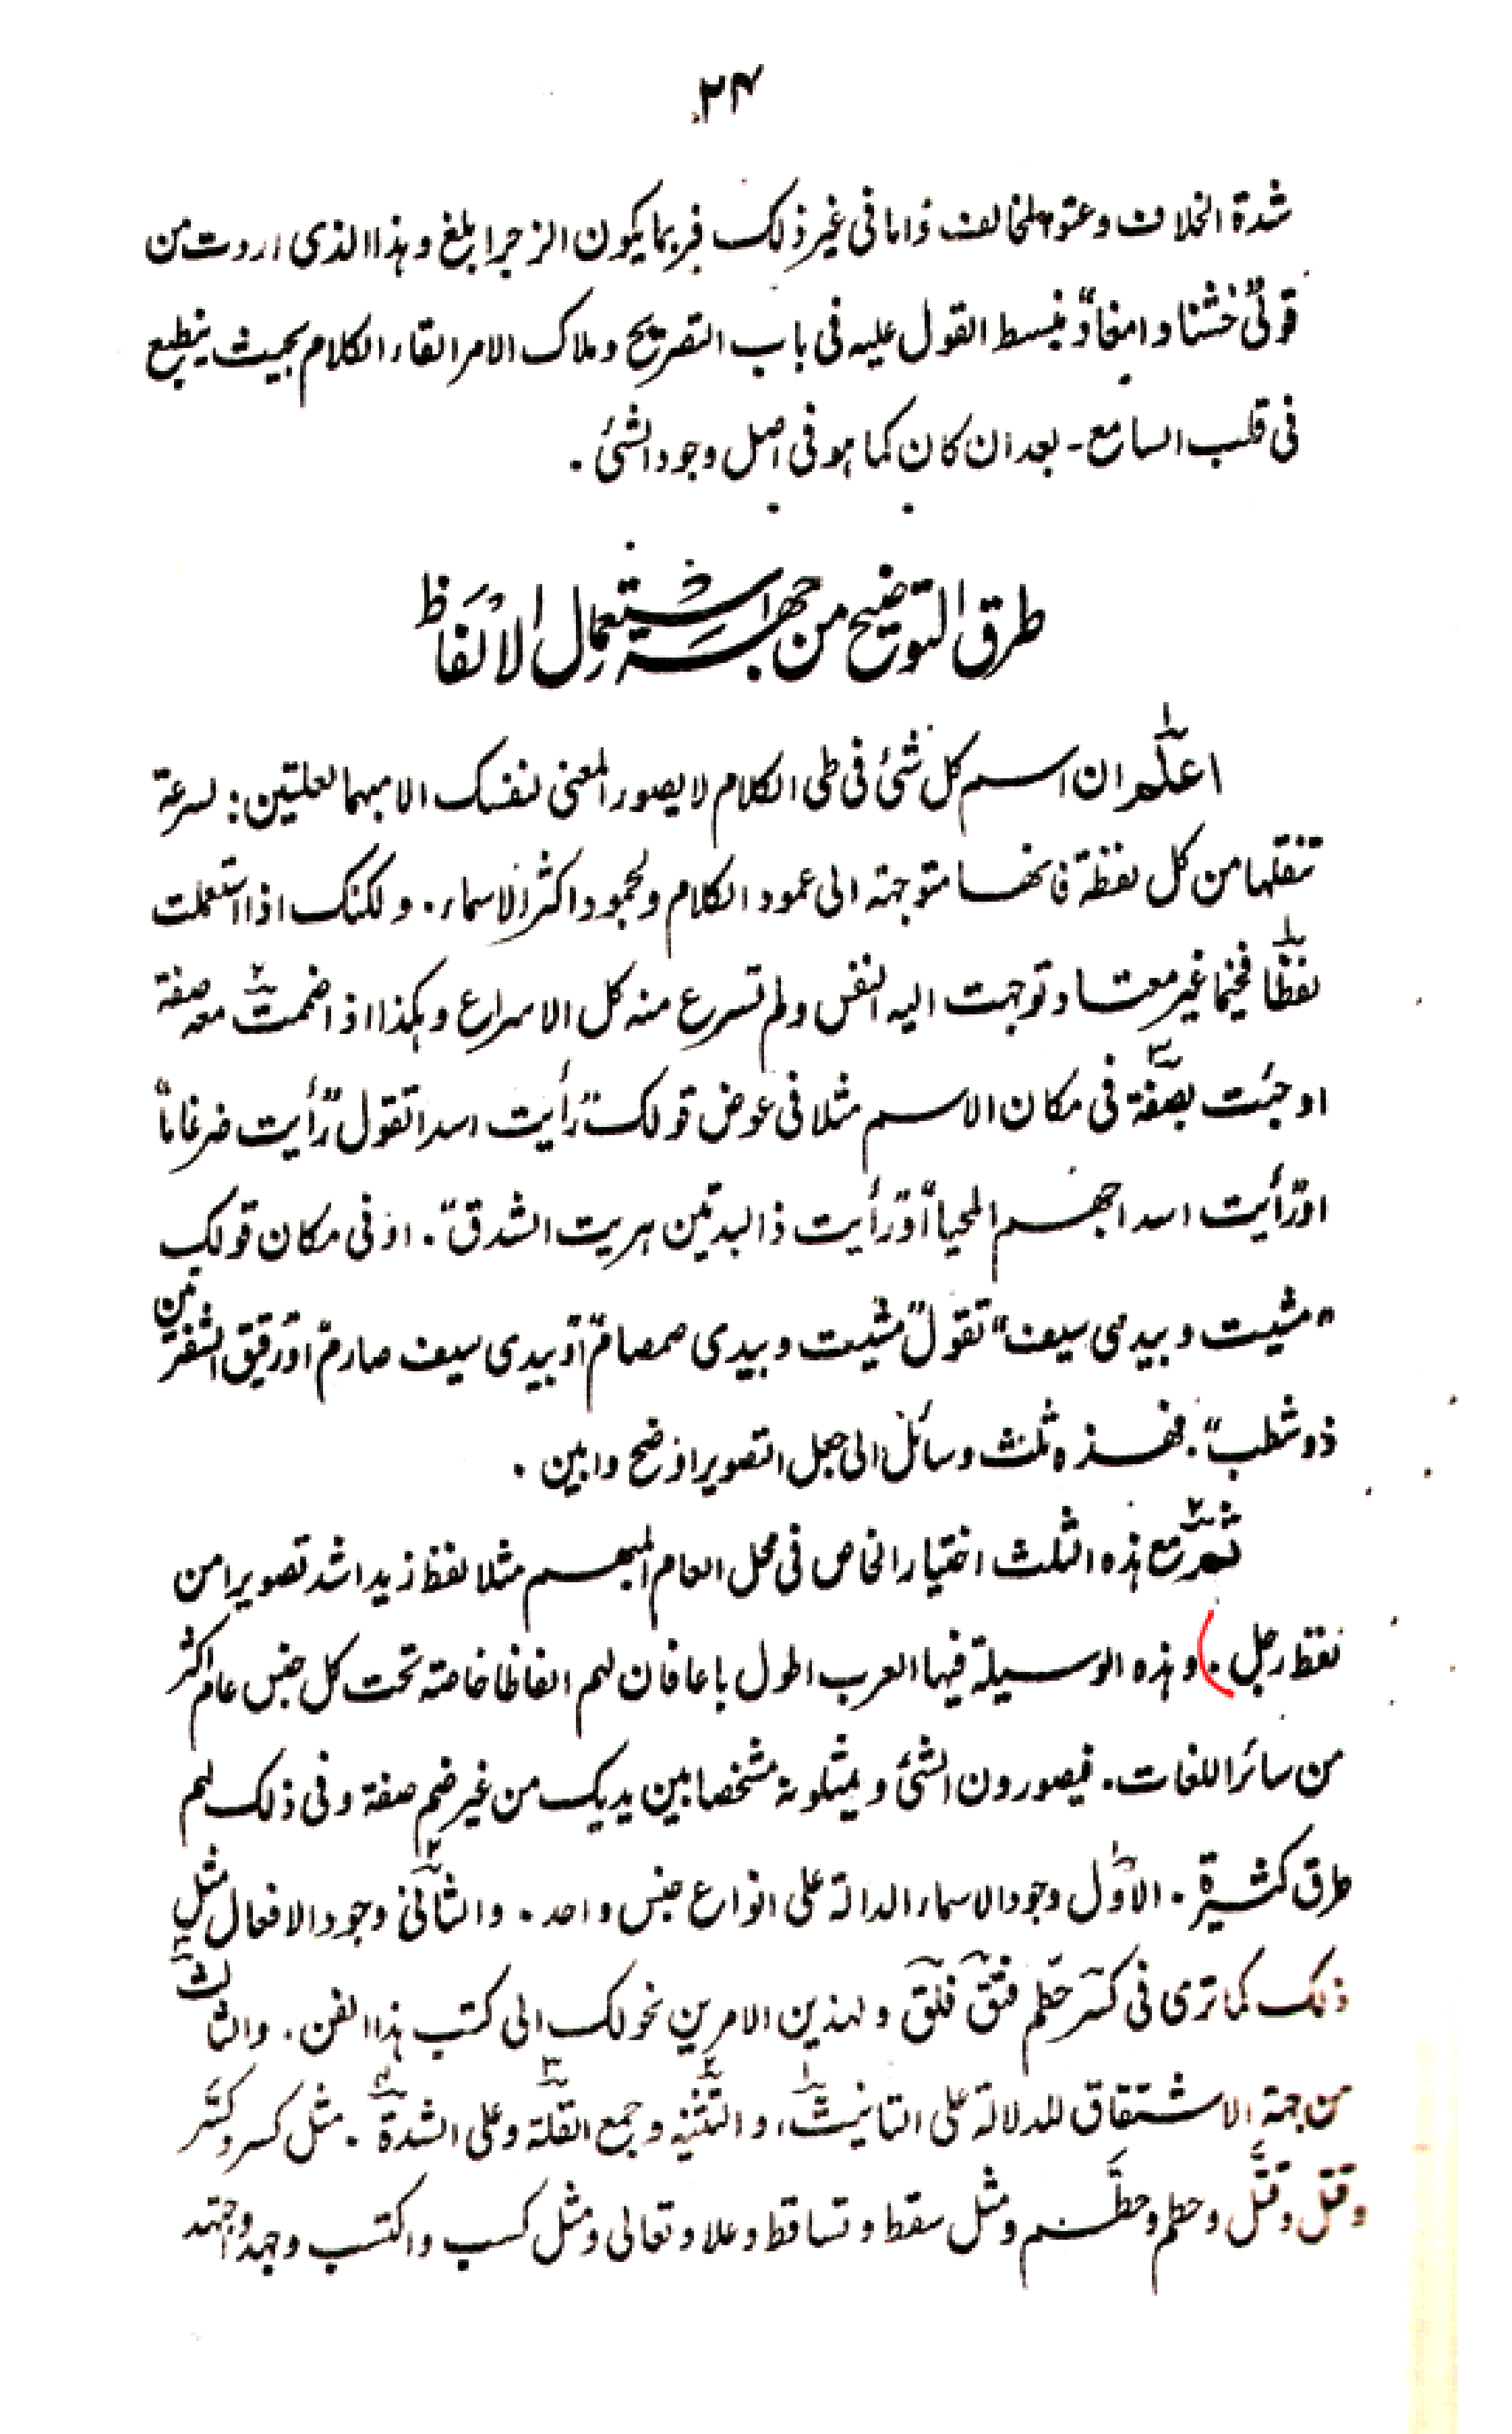 ۲۴
شدة الخلاف وعتو المخالف واما فى غير ذلك فربما يكون الزجر ابلغ وهذا الذى اردت من
قولى خشنا و نبسط القول عليه فى باب التصريح وملاك الامر القاء الكلام بحيث ينطبع
فى قلب السامع - بعد ان كان كما هو فى اصل وجود الشئ .
طرق التوضيح من جهة استعمال الالفاظ
اعلم ان اسم كل شئ فى طى الكلام لا يصور المعنى لنفسك الا مبهما لعلتين : لسرعة
تنقلها من كل لفظة فانها متوجهة الى عمود الكلام ولجمود اكثر الاسماء . ولكنك اذا استعملت
لفظا فخيما غير معتاد توجهت اليه النفس ولم تسرع منه كل الاسراع وهكذا اذا ضممت معه صفة
او جئت بصفة فى مكان الاسم مثلا فى عوض قولك "رأيت اسدا تقول "رأيت ضرغاما"
او "رأيت اسدا جهم المحيا" او "رأيت ذا لبدتين هريت الشدق" . او فى مكان قولك
"مشيت وبيدى سيف" تقول "مشيت وبيدى صمصام" او "بيدى سيف صارم" او "رقيق الشفرتين
ذو شطب" . فهذه ثلث وسائل الى جعل التصوير اوضح وابين .
ثم مع هذه الثلث اختيار الخاص فى محل العام المبهم مثلا لفظ زيد اشد تصويرا من
لفظ رجل . ) وهذه الوسيلة فيها العرب اطول باعا فان لهم الفاظا خاصة تحت كل جنس عام اكثر
من سائر اللغات . فيصورون الشئ ويمثلونه مشخصا بين يديك من غير ضم صفة وفى ذلك لهم
طرق كثيرة . الاول وجود الاسماء الدالة على انواع جنس واحد . والثانى وجود الافعال مثل
ذلك كما ترى فى كسر حطم فتق فلق ولهذين الامرين نحولك الى كتب هذا الفن . والثالث
من جهة الاشتقاق للدلالة على التانيث ، والتثنيه وجمع القلة وعلى الشدة . مثل كسر وكسّر
وقتل وقتّل وحطم وحطّم ومثل سقط وتساقط وعلا وتعالى ومثل كسب واكتسب وجهد واجتهد